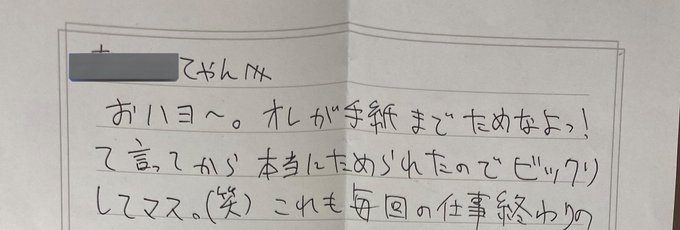 てゃんへ
おハヨ〜。オレが手紙までためなよっ!
て言ってから本当にためられたのでビックリ
してマス。(笑) これも毎回の仕事終わりの